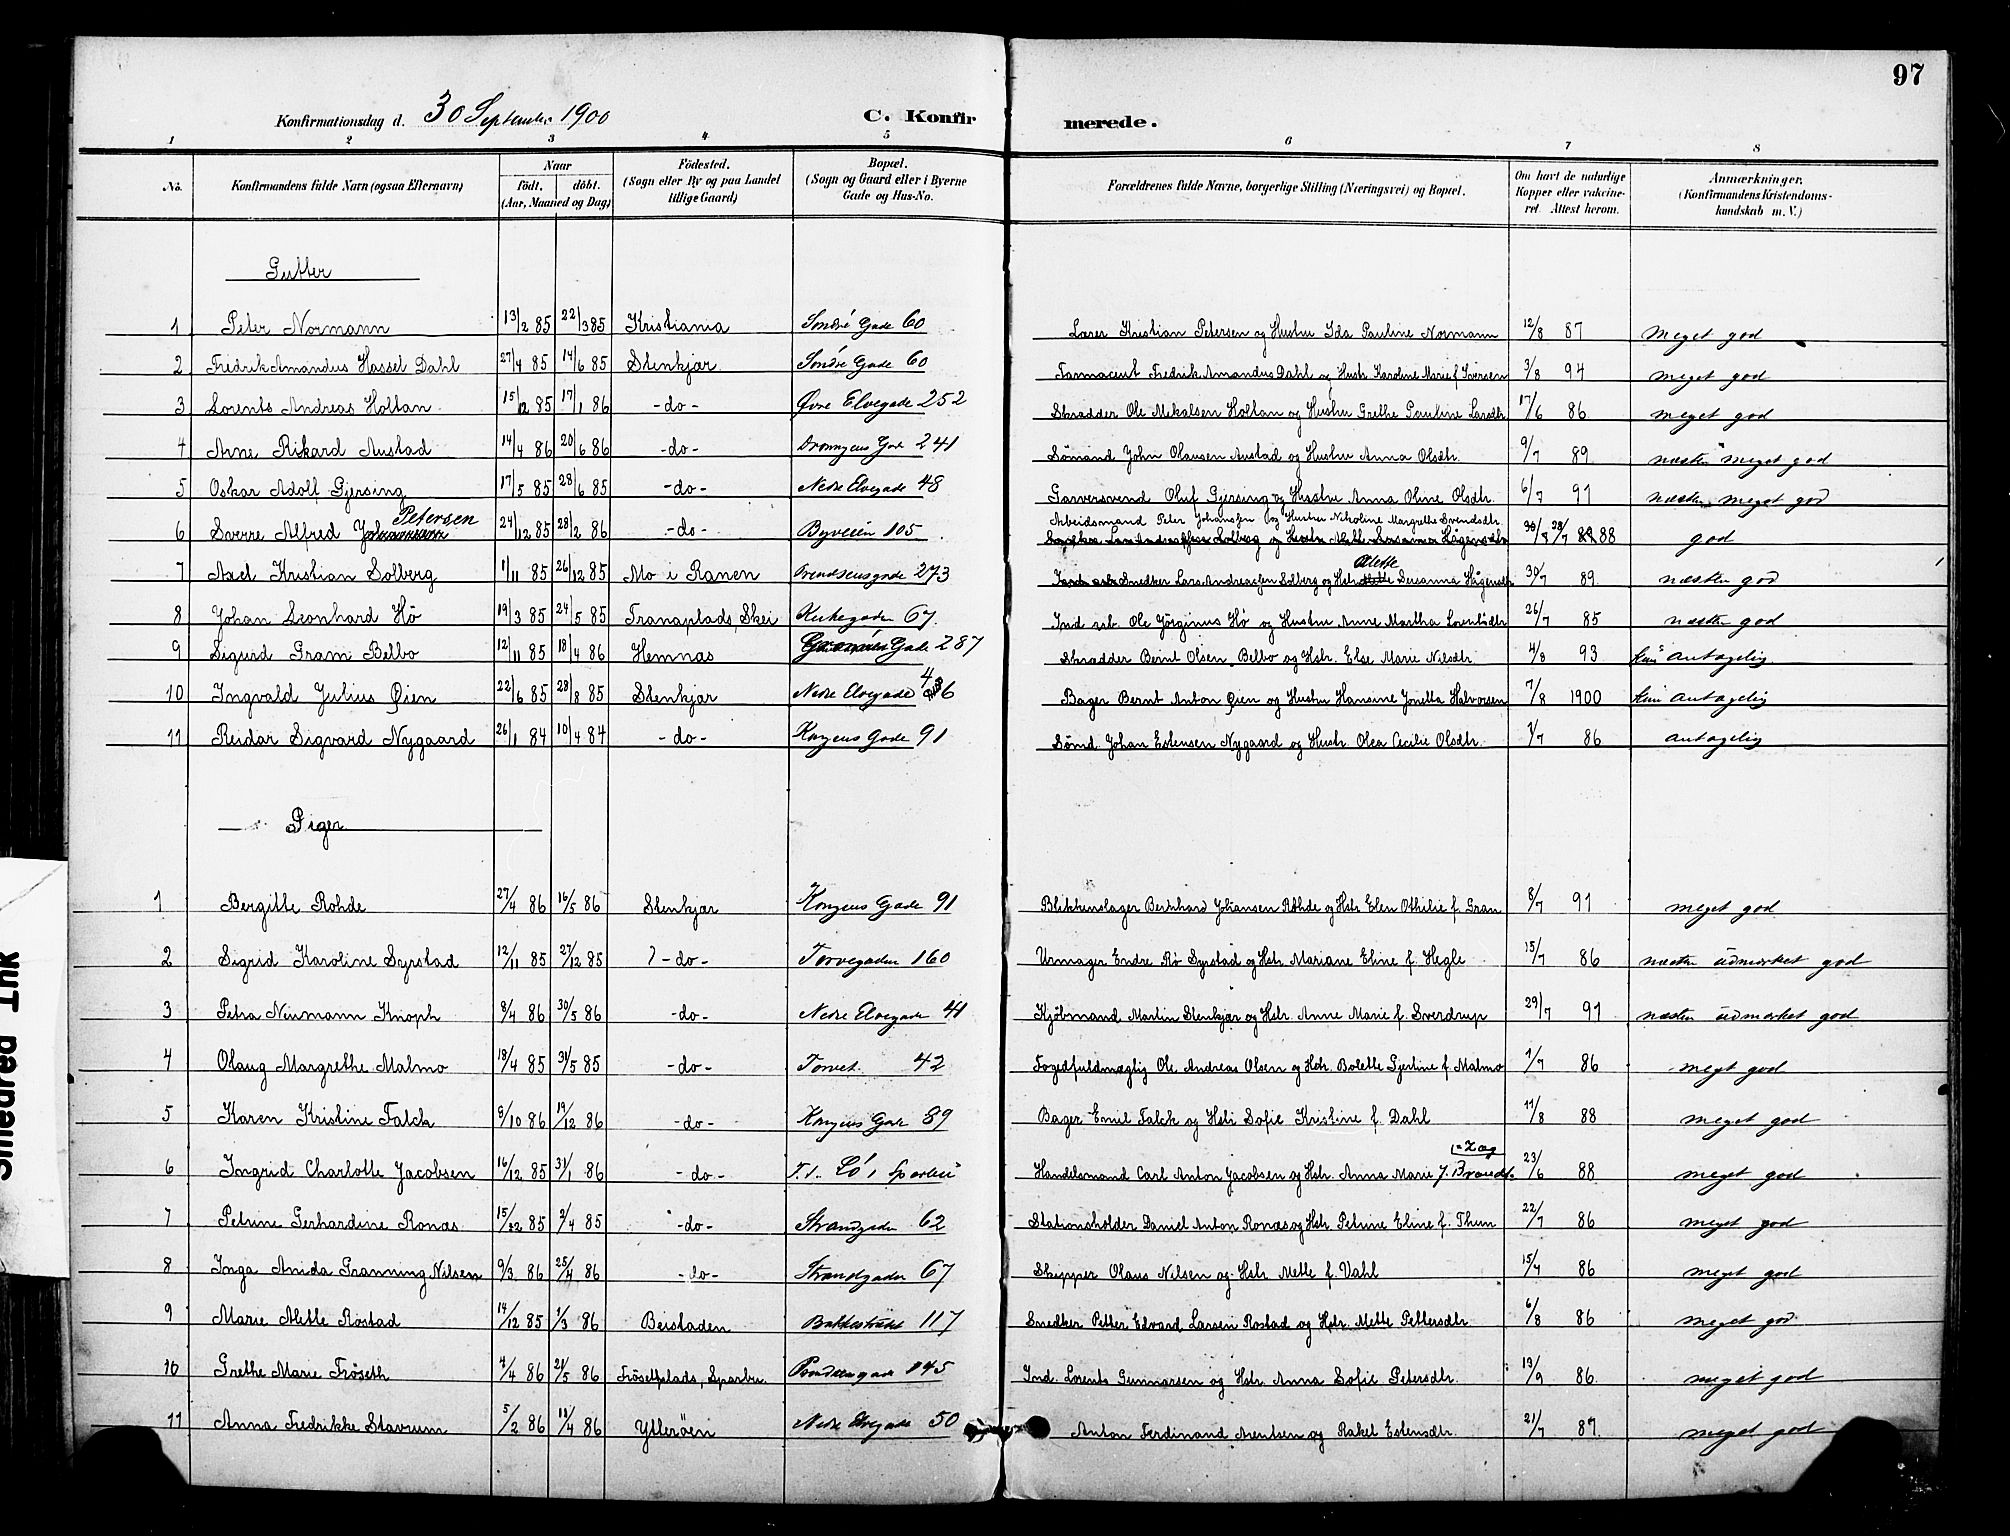 97
Konfirmationsdag d. 30 September 1900 C. Konfirmerede.
1 2 3 4 5 6 7 8
No. Konfirmandens fulde Navn (ogsaa Efternavn) Naar födt. döbt. (Aar, Maaned og Dag) Födested. (Sogn eller By og paa Landet tillige Gaard) Bopæl. (Sogn og Gaard eller i Byerne Gade og Hus-No. Forældrenes fulde Navne, borgerlige Stilling (Næringsvei) og Bopæl. Om havt de naturlige Kopper eller vakcineret. Attest herom. Anmærkninger. (Konfirmandens Kristendomskundskab m. V.)
Gutter
1 Peter Normann 13/2 85 22/3 85 Kristiania Söndre Gade 60 Lærer Kristian Petersen og Hustru Ida Pauline Normann 12/8 87 meget god
2 Fredrik Amandus Hassel Dahl 27/4 85 14/6 85 Stenkjær Söndre Gade 60 Farmaceut Fredrik Amandus Dahl og Hustr. Karoline Marie f. Iversen 3/8 94 meget god
3 Lorents Andreas Holtan 15/12 85 17/1 86 -do- Øvre Elvegade 252 Skrædder Ole Mikalsen Holtan og Hustru Grethe Pauline Larsdtr. 17/6 86 meget god
4 Arne Rikard Austad 14/4 86 20/6 86 -do- Dronngens Gade 241 Sömand John Olausen Austad og Hustru Anna Olsdtr. 9/7 89 næsten meget god
5 Oskar Adolf Gjersing 17/5 85 28/6 85 -do- Nedre Elvegade 48 Garversvend Oluf Gjersing og Hustru Anna Oline Olsdtr. 6/7 91 næsten meget god
6 Sverre Alfred Petersen 24/12 85 28/2 86 -do- Byveien 105 Arbeidsmand Peter Johansen og Hustru Nikoline Margrethe Svendsdtr. 28/7 88 god
7 Axel Kristian Solberg 1/11 85 26/12 85 Mo i Ranen 273 Snedker Lars Andreassen Solberg og Hstr. Olette Susanna Hågensdtr 30/7 89 næsten god
8 Johan Leonhard Hö 19/3 85 24/5 85 Tranaplads, Skei Kirkegaden 67. Ind. arb. Ole Jörginus Hö og Hustru Anne Martha Lorentsdtr 26/7 85 næsten god
9 Sigurd Gram Belbo 12/11 85 18/4 86 Hemnæs Gade 287 Skrædder Bernt Olsen Belbo og Hstr. Else Marie Nilsdtr. 4/8 93 kun antagelig.
10 Ingvald Julius Øien 22/6 85 28/8 85 Stenkjær Nedre Elvegade 46 Bager Bernt Anton Øien og Hustru Hansine Jonetta Halvorsen 7/8 1900 kun antagelig
11 Reidar Sigvard Nygaard 26/1 84 10/4 84 -do- Kongens Gade 91 Sömd. Johan Estensen Nygaard og Hustr. Olea Cecilie Olsdtr. 1/7 86 antagelig
Piger
1 Bergitte Rohde 27/4 86 16/5 86 Stenkjær Kongens Gade 91 Blikkenslager Bernhard Johansen Rohde og Hstr. Elen Othilie f. Gran 8/7 91 meget god
2 Sigrid Karoline Syrstad 12/11 85 27/12 85 -do- Torvegaden 160 Urmager Endre Rø Syrstad og Hstr. Mariane Eline f. Hegle 15/7 86 næsten udmærket god
3 Petra Neumann Knoph 8/4 86 30/5 86 -do- Nedre Elvegade 41 Kjöbmand Martin Stenkjær og Hstr. Anne Marie f. Sverdrup 29/7 91 næsten udmærket god
4 Olaug Margrethe Malmo 18/4 85 31/5 85 -do- Torvet. 42 Fogedfuldmægtig Ole Andreas Olsen og Hstr. Bolette Gjertine f. Malmo 1/7 86 meget god
5 Karen Kristine Falck 8/10 86 19/12 86 -do- Kongens Gade 89 Bager Emil Falck og Hstr Sofie Kristine f. Dahl 11/8 88 meget god
6 Ingrid Charlotte Jacobsen 16/12 85 31/1 86 -do- Lö i Sparbu Handelsmand Carl Anton Jacobsen og Hstr. Anna Marie f. Brandt 23/6 88 meget god
7 Petrine Gerhardine Ronæs 15/2 85 2/4 85 -do- Strandgaden 62 Stationsholder Daniel Anton Ronæs og Hstr. Petrine Eline f. Thun 22/7 86 meget god
8 Inga Anida Granning Nilsen 9/3 86 25/4 86 -do- Strandgaden 67 Skipper Olaus Nilsen og Hstr. Mette f. Vahl 15/7 86 meget god
9 Marie Mette Rostad 14/12 85 1/3 86 Beistaden Bakkestrædet 117 Snedker Petter Edvard Larsen Rostad og Hstr. Mette Pettersdtr. 6/8 86 meget god
10 Grethe Marie Fröseth 4/4 86 21/5 86 Frösetplads, Sparbu. 145 Ind. Lorents Gunnarsen og Hstr. Anna Sofie Petersdtr. 19/9 86 meget god
11 Anna Fredrikke Stavrum 5/2 86 11/4 86 Ytteröen Nedre Elvegade 50 Anton Ferdinand Arentsen og Rakel Estensdtr. 21/7 87 meget god